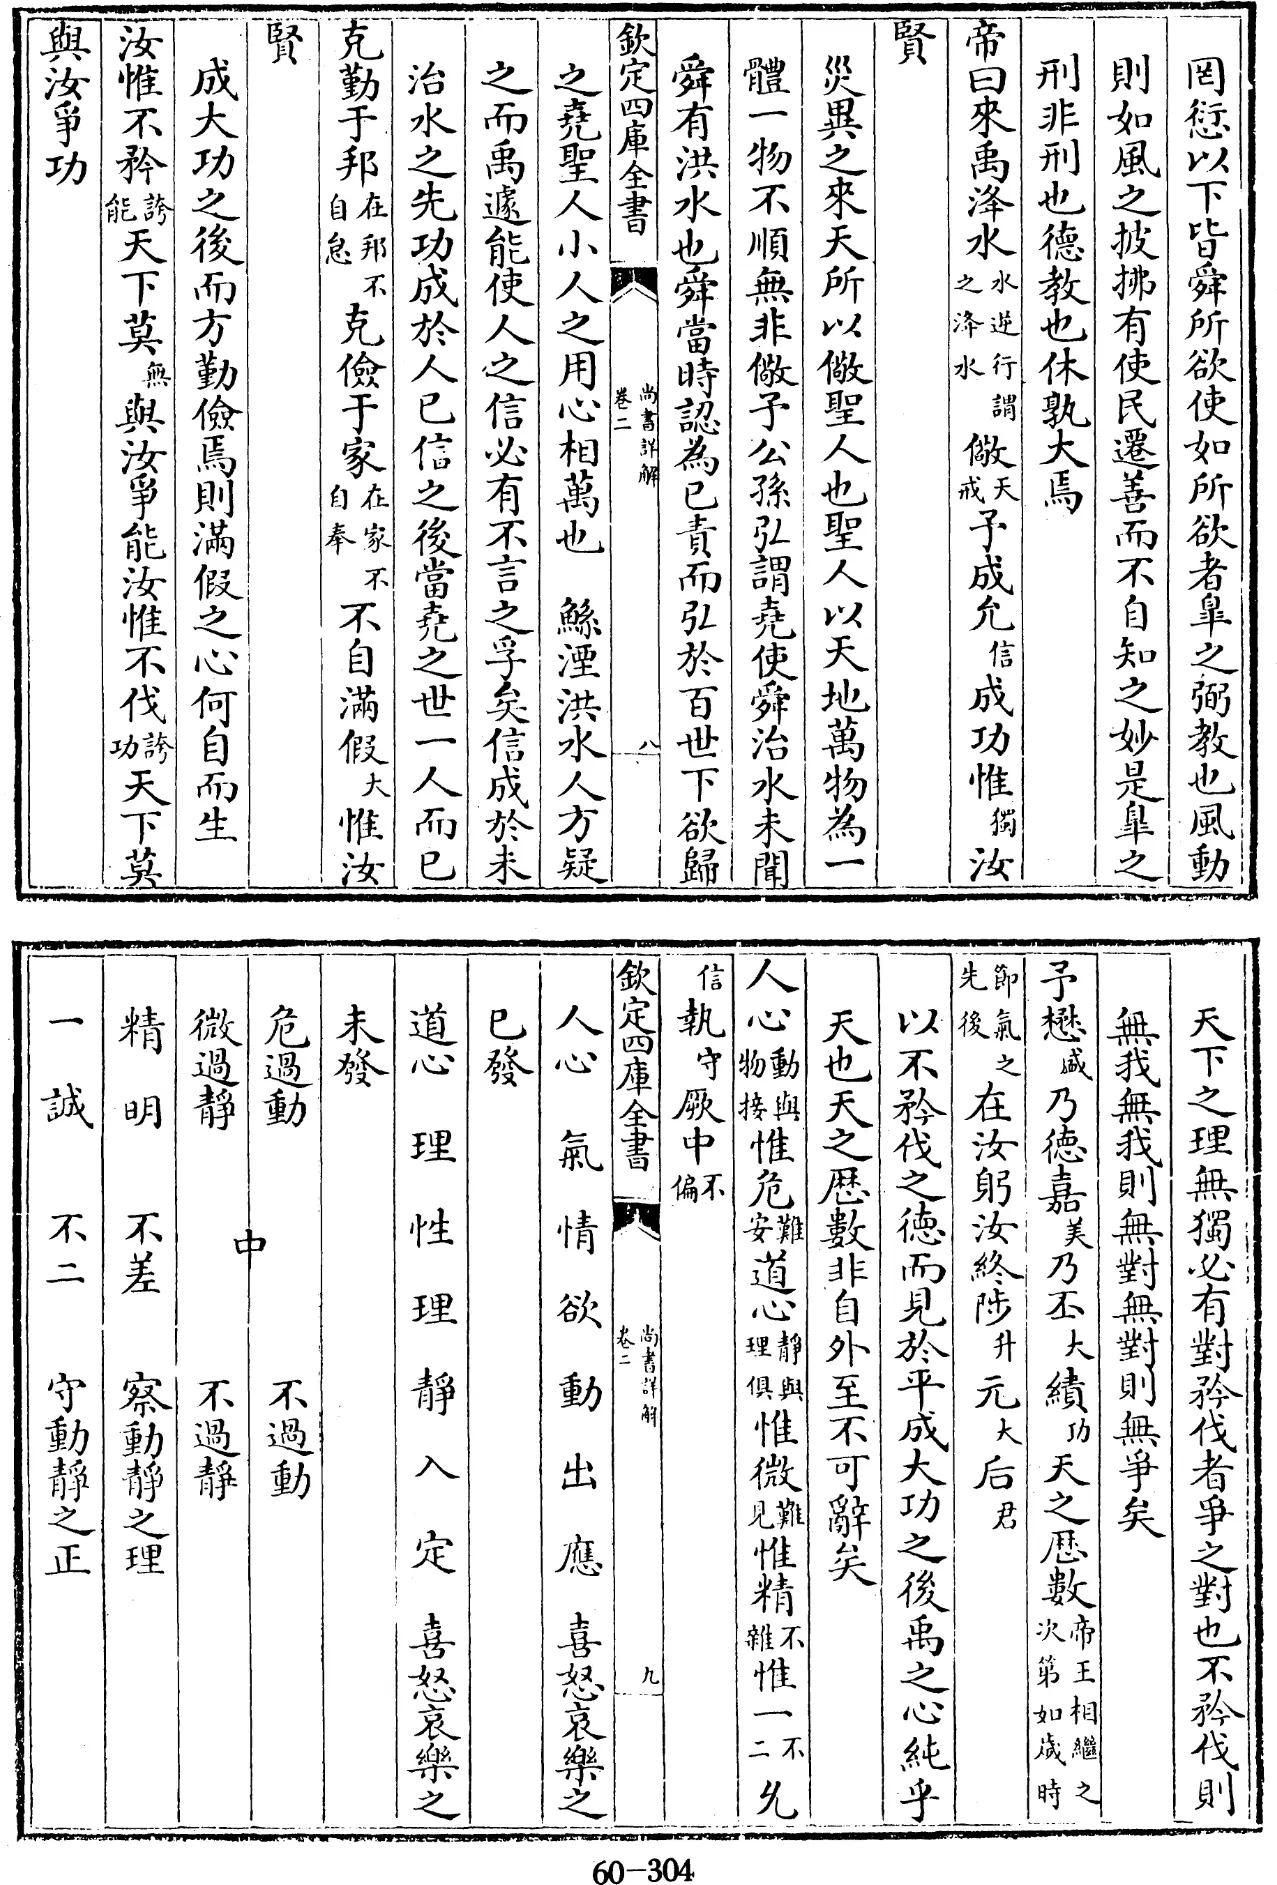 罔愆以下皆舜所欲使如所欲者臯之弼教也風動
則如風之披拂有使民遷善而不自知之妙是臯之
刑非刑也德教也休孰大焉
帝曰來禹洚水水逆行謂之洚水儆天戒予成允信成功惟獨汝
賢
災異之來天所以儆聖人也聖人以天地萬物為一
體一物不順無非儆予公孫弘謂堯使舜治水未聞
舜有洪水也舜當時認為已責而弘於百世下欲歸
欽定四庫全書
尚書詳解
卷二
八
之堯聖人小人之用心相萬也 鯀湮洪水人方疑
之而禹遽能使人之信必有不言之孚矣信成於未
治水之先功成於人已信之後當堯之世一人而已
克勤于邦在邦不自怠克儉于家在家不自奉不自滿假大惟汝
賢
成大功之後而方勤儉焉則滿假之心何自而生
汝惟不矜誇能天下莫無與汝爭能汝惟不伐誇功天下莫
與汝爭功
天下之理無獨必有對矜伐者爭之對也不矜伐則
無我無我則無對無對則無爭矣
予懋盛乃德嘉美乃丕大績功天之厯數帝王相繼之次第如歲時
節氣之先後在汝躬汝終陟升元大后君
以不矜伐之德而見於平成大功之後禹之心純乎
天也天之厯數非自外至不可辭矣
人心動與物接惟危難安道心靜與理俱惟微難見惟精不雜惟一不二允
信執守厥中不偏
欽定四庫全書
尚書詳解
卷二
九
人心 氣 情 欲 動 出 應 喜怒哀樂之
已發
道心 理 性 理 靜 入 定 喜怒哀樂之
未發
危過動 不過動
中
微過靜 不過靜
精 明 不差 察動靜之理
一 誠 不二 守動靜之正
60-304